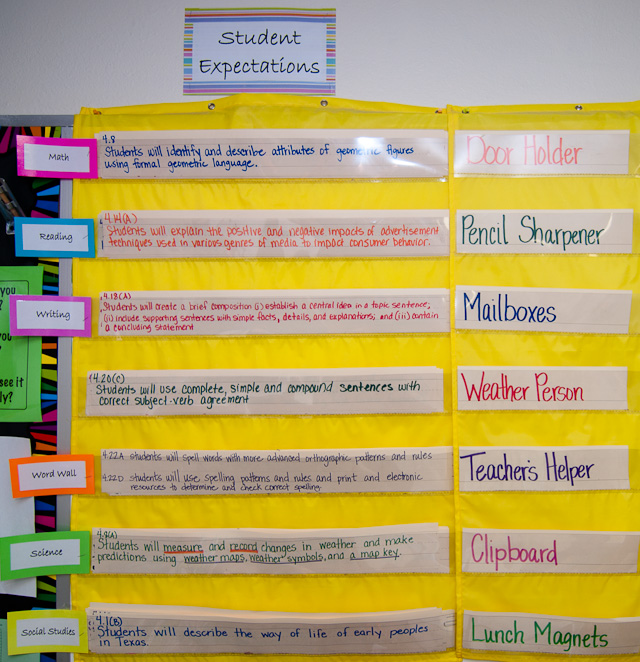 Student
Expectations
Math
4.8
Students will identify and describe attributes of geometric figures
using formal geometric language.
Door Holder
Reading
4.14(A)
Students will explain the positive and negative impacts of advertisement
techniques used in various genres of media to impact consumer behavior.
Pencil Sharpener
Writing
4.18(A)
Students will create a brief composition (i) establish a central idea in a topic sentence;
(ii) include supporting sentences with simple facts, details, and explanations; and (iii) contain
a concluding statement
Mailboxes
4.20(C)
Students will use complete, simple and compound sentences with
correct subject-verb agreement
Weather Person
Word Wall
4.22A students will spell words with more advanced orthographic patterns and rules
4.22D students will use spelling patterns and rules and print and electronic
resources to determine and check correct spelling
Teacher's Helper
Science
Students will measure and record changes in weather and make
predictions using weather maps, weather symbols, and a map key.
Clipboard
Social Studies
4.1(B)
Students will describe the way of life of early peoples
in Texas.
Lunch Magnets
you
?
you
?
see it
ly?